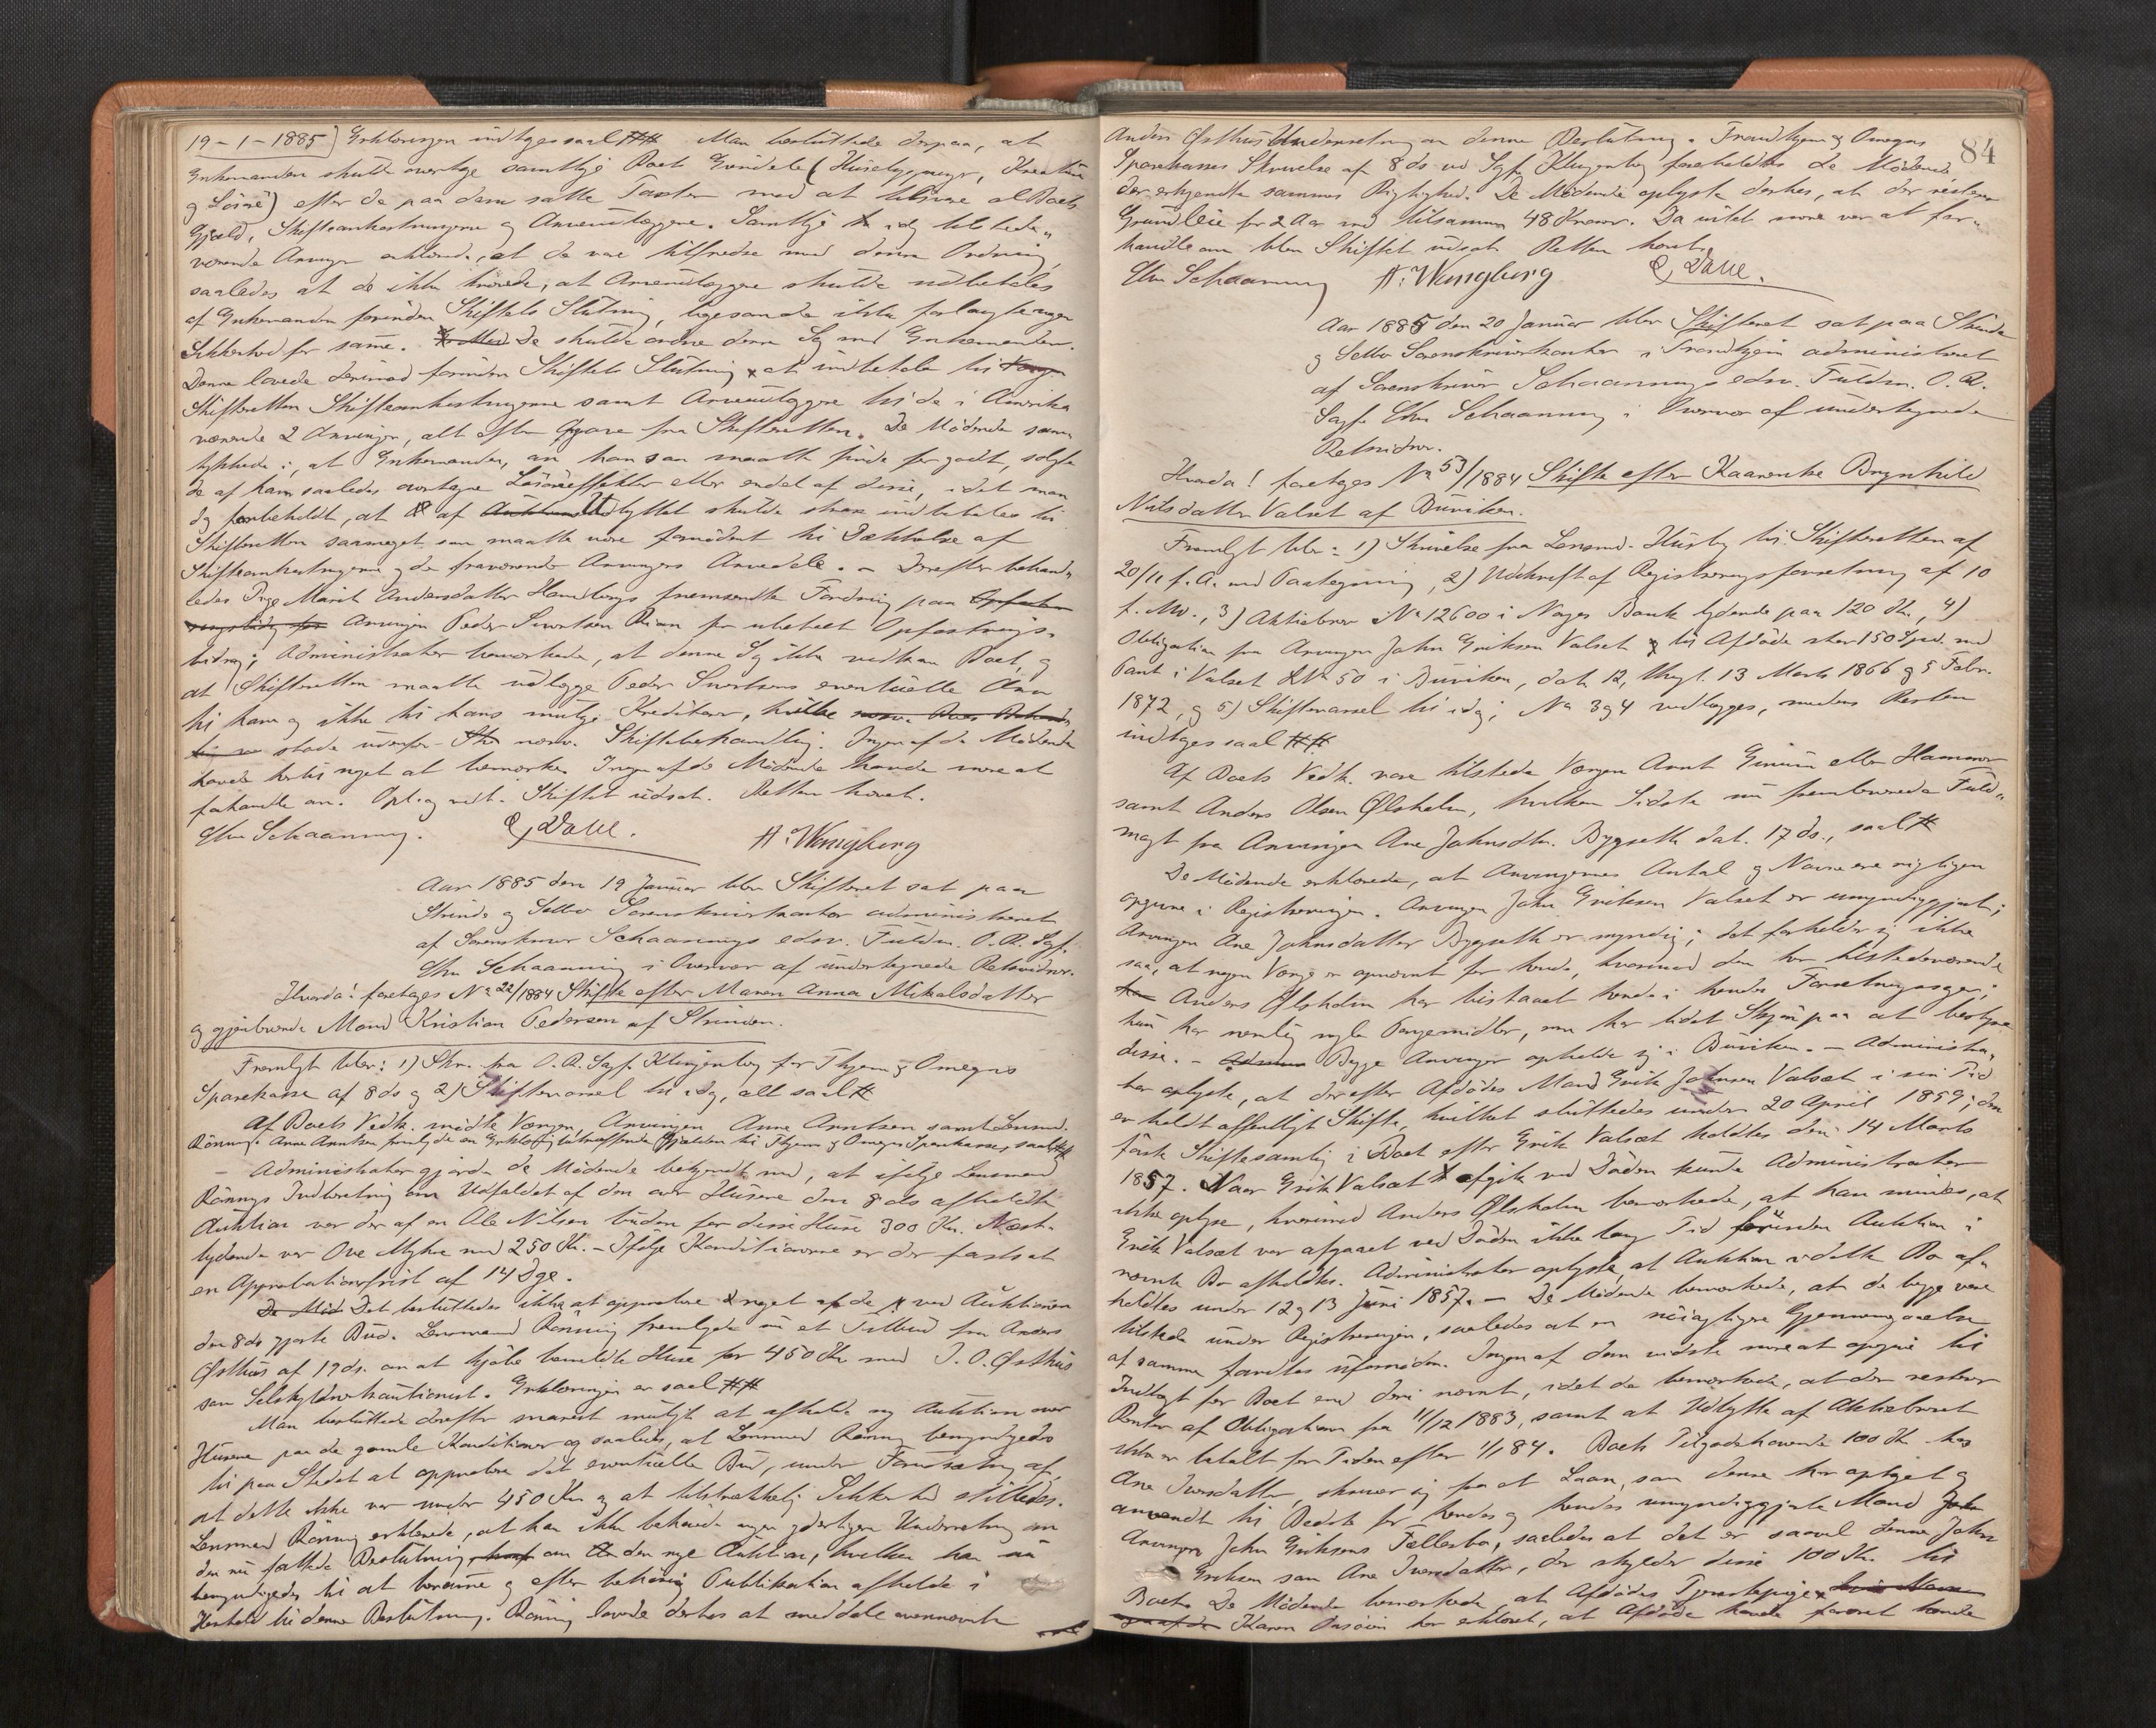 19-1-1885) Erklæringen indtages saal ## Man besluttede derpaa, at
Enkemanden skulde overtage samtlige Boets Eiendele (Huusebygninger, Kreaturer
og Løsøre) efter de paa dem satte Taxter mod at tilsvare al Boets
Gjæld, Skifteomkostningerne og Arveudlæggene. Samtlige idag tilstede-
værende Arvinger erklærede, at de vare tilfredse med denne Ordning,
saaledes at de ikke krævede, at Arveudlæggene skulde udbetales
af Enkemanden forinden Skiftets Slutning, ligesom de ikke forlangte nogen
Sikkerhed for samme. De skulde ordne denne Sag med Enkemanden.
Denne lovede derimod forinden Skiftets Slutning at indbetale til
Skifteretten Skifteomkostningerne samt Arveudlæggene til de i Amerika
værende 2 Arvinger, alt efter Opgave fra Skifteretten. De Mødende sam-
tykkede i, at Enkemanden, om han saa maatte finde for godt, solgte
de af ham saaledes overtagne Løsøreeffekter eller endel af disse, idet man
dog forbeholdt, at af Udbyttet skulde strax indbetales til
Skifteretten saameget som maatte være fornødent til Dækkelse af
Skifteomkostningerne og de fraværende Arvingers Arvedele. - Derefter behand-
ledes Pige Marit Andersdatter Hambergs fremsendte Fordring paa
Arvingen Peder Sivertsen Rian for ubetalt Opfostrings-
bidrag; Administrator bemærkede, at denne Sag ikke vedkom Boet, og
at Skifteretten maatte udlægge Peder Sivertsens eventuelle Arv
til ham og ikke til hans mulige Kreditorer, hvilke
stode udenfor nærv. Skiftebehandling. Ingen af de Mødende
havde hertil noget at bemærke. Ingen af de Mødende havde mere at
forhandle om. Opl. og vedt. Skiftet udsat. Retten hævet.
Chr Schaanning. E, Dahl. A. Wengberg
Aar 1885 den 19 Januar blev Skifteret sat paa
Strinde og Selbo Sorenskriverkontor administreret
af Sorenskriver Schaannings edsv. Fuldm. O.R. Sagf.
Chr Schaanning i Overvær af undertegnede Retsvidner.
Hvorda! foretages No 22/1884 Skifte efter Maren Anna Mikalsdatter
og gjenlevende Mand Kristian Pedersen af Strinden.
Fremlagt blev: 1) Skr. fra O.R. Sagf. Klingenberg for Thjem og Omegns
Sparekasse af 8 ds og 2) Skiftevarsel til idag, alt saal #
Af Boets Vedk. mødte Værgen, Arvingen Anne Arntsen samt Lensmd.
Rønning. Anne Arntsen fremlagde en Erklæring betræffende Gjælden til Thjem og Omegns Sparekasse, saal ##
- Administrator gjorde de Mødende bekjendt med, at ifølge Lensmand
Rønnings Indberetning om Udfaldet af den over Husene den 8 ds afholdte
Auktion var der af en Ole Nilsen buden for disse Huse 300 Kr. Næst-
bydende var Ove Myhre med 250 Kr. - Ifølge Konditionerne er der fastsat
en Approbationsfrist af 14 Dge.
De Mød Det besluttedes ikke at approbere noget af de ved Auktionen
den 8 ds gjorte Bud. Lensmand Rønning fremlagde nu et Tilbud fra Anders
Østhus af 19 ds. om at kjøbe bemeldte Huse for 450 Kr med J. O. Østhus
som Selvskyldnerkautionist. Erklæringen er saal ##
Man besluttede derefter snarest muligt at afholde ny Auktion over
Husene paa de gamle Konditioner og saaledes, at Lensmand Rønning bemyndigedes
til paa Stedet at approbere det eventuelle Bud, under Forudsætning af,
at dette ikke var under 450 Kr og at tilstrækkelig Sikkerhed stilledes.
Lensmand Rønning erklærede, at han ikke behøvede nogen yderligere Underretning om
den nu fattede Beslutning om den nye Auktion, hvilken han nu
bemyndigedes til at beramme og efter behørig Publikation afholde i
Henhold til denne Beslutning. Rønning lovede derhos at meddele ovennævnte
84
Anders Østhus Underretning om denne Beslutning. Trondhjem og Omegns
Sparekasses Skrivelse af 8 ds ved Sagf. Klingenberg foreholdtes de Mødende,
der erkjendte sammes Rigtighed. De Mødende oplyste derhos, at der resterer
Grundleie for 2 Aar med tilsammen 48 Kroner. Da intet mere var at for-
handle om blev Skiftet udsat. Retten hævet.
Chr Schaanning A. Wengberg E, Dahl.
Aar 1885 den 20 Januar blev Skifteret sat paa Strinde
og Selbo Sorenskriverkontor i Trondhjem administreret
af Sorenskriver Schaannings edsv. Fuldm. O.R.
Sagf. Chr Schaanning i Overvær af undertegnede
Retsvidner.
Hvorda! foretages No 53/1884 Skifte efter Kaarenke Brynhild
Nilsdatter Valset af Buviken.
Fremlagt blev: 1) Skrivelse fra Lensmd. Husby til Skifteretten af
20/11 f.A. med Paategning, 2) Udskrift af Registreringsforretning af 10
f. Md., 3) Aktiebrev No 12600 i Norges Bank lydende paa 120 Kr, 4)
Obligation fra Arvingen John Eriksen Valset til Afdøde stor 150 Spd. med
Pant i Valset No 50 i Buviken, dat. 12, thingl. 13 Marts 1866 og 5 Febr.
1872, og 5) Skiftevarsel til idag; No 3 og 4 vedlægges, medens Resten
indtages saal ##
Af Boets Vedk. vare tilstede Værgen Arnt Grinni eller Hammer
samt Anders Olsen Ølsholm, hvilken Sidste nu frembærede Fuld-
magt fra Arvingen Ane Johnsdtr. Bygseth dat. 17 ds., saal #
De Mødende erklærede, at Arvingernes Antal og Navne ere rigtigen
opgivne i Registreringen. Arvingen John Eriksen Valset er umyndiggjort;
Arvingen Ane Johnsdatter Bygseth er myndig; det forholder sig ikke
saa, at nogen Værge er opnævnt for hende, hvorimod den her tilstedeværende
Anders Ølsholm har bistaaet hende i hendes Forretningssager;
hun har nemlig nogle Pengemidler, men har lidet Skjøn paa at bestyre
disse. - Begge Arvinger opholde sig i Buviken. - Administra-
tor oplyste, at der efter Afdødes Mand Erik Johnsen Valset i sin Tid
er holdt offentligt Skifte, hvilket sluttedes under 20 April 1859; den
første Skiftesamling i Boet efter Erik Valset holdtes den 14 Marts
1857. Naar Erik Valset afgik ved Døden kunde Administrator
ikke oplyse, hvorimod Anders Ølsholm bemærkede, at han mindes, at
Erik Valset var afgaaet ved Døden ikke lang Tid forinden Auktion i
nævnte Bo afholdtes. Administrator oplyste, at Auktion i dette Bo af-
holdtes under 12 og 13 Juni 1857. - De Mødende bemærkede, at de begge vare
tilstede under Registreringen, saaledes at en nøiagtigere Gjennemgaaelse
af samme fandtes ufornøden. Ingen af dem vidste mere at opgive til
Indtægt for Boet end deri nævnt, idet de bemærkede, at der resterer
Renter af Obligationen fra 11/12 1883, samt at Udbytte af Aktiebrevet
ikke er betalt for Tiden efter 1/1 84. Boets Tilgodehavende 100 Kr hos
Ane Iversdatter, skriver sig fra et Laan, som denne har optaget og
anvendt til Bedste for hendes og hendes umyndiggjorte Mand
Arvingen John Eriksens Fællesbo, saaledes at det er saavel denne John
Eriksen som Ane Iversdatter, der skylder disse 100 Kr. til
Boet. De Mødende bemærkede, at Afdødes Tjenestepige
Karen Onsøien har erklæret, at Afdøde havde foræret hende